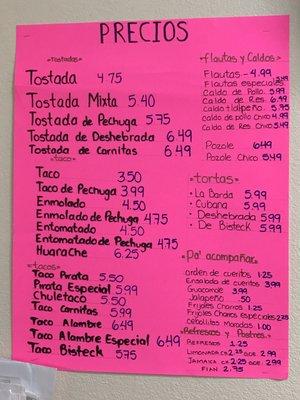 PRECIOS
"Tostadas"
Tostada 4.75
Tostada Mixta 5.40
Tostada de Pechuga 5.75
Tostada de Deshebrada 6.49
Tostada de Carnitas 6.49
"taco"
Taco 3.50
Taco de Pechuga 3.99
Enmolado 4.50
Enmolado de Pechuga 4.75
Entomatado 4.50
Entomatado de Pechuga 4.75
Huarache 6.25
"tacos"
Taco Pirata 5.50
Pirata Especial 5.99
Chuletaco 5.50
Taco Carnitas 5.99
Taco Alambre 6.49
Taco Alambre Especial 6.49
Taco Bisteck 5.75
"flautas y Caldos"
Flautas - 4.99
Flautas especiales 5.49
Caldo de Pollo. 5.99
Caldo de Res 6.49
Caldo tlalpeño. 5.75
caldo de pollo Chico 4.99
Caldo de Res Chico 5.49
Pozole 6.49
Pozole Chico 5.49
"tortas"
La Barda 5.99
Cubana 5.99
Deshebrada 5.99
De Bisteck 5.99
"Pa' acompañar"
orden de cueritos 1.25
Ensalada de cueritos 3.99
Guacamole 3.99
Jalapeño .50
Frijoles Charros 1.25
Frijoles Charros Especiales 2.75
cebollitas Moradas 1.00
Refrescos y Postres
Limonada ch 2.25 gde. 2.99
Jamaica ch 2.25 gde 2.99
Flan 2.75